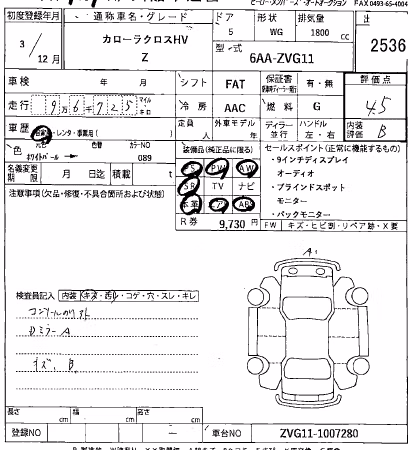 ビーロー・メンバーズ・オートオークション FAX0493-65-4004
初度登録年月 通称車名・グレード ドア 形状 排気量 出
3 / 12月 カローラクロスHV Z 5 WG 1800 cc 2536
型式 6AA-ZVG11
車検 年 月 シフト FAT 保証書 有・無 評価点
走行 9万6千725 マイル キロ 冷房 AAC 燃料 G 4.5
車歴 自家・レンタ・事業用( ) 定員 人 外車モデル ディーラー 並行 ハンドル 左・右 内装評価 B
色 元色 色替 カラーNO
ホワイトパール → 089
装備品(純正品に限る) セールスポイント(正常に機能するもの)
PS PW AW
SR TV ナビ
本革 エアB ABS
・9インチディスプレイ
オーディオ
・ブラインドスポット
モニター
・バックモニター
名義変更期限 月 日迄 積載 t
R券 9,730 円
注意事項(欠品・修復・不具合箇所および状態)
FW キズ・ヒビ割・リペア跡・X要
A
検査員記入 内装(キズ・汚れ・コゲ・穴・スレ・キレ
コンソールのリスト
Dミラー A
キズ、B
長さ cm 幅 cm 高さ cm
登録NO 車台NO ZVG11-1007280